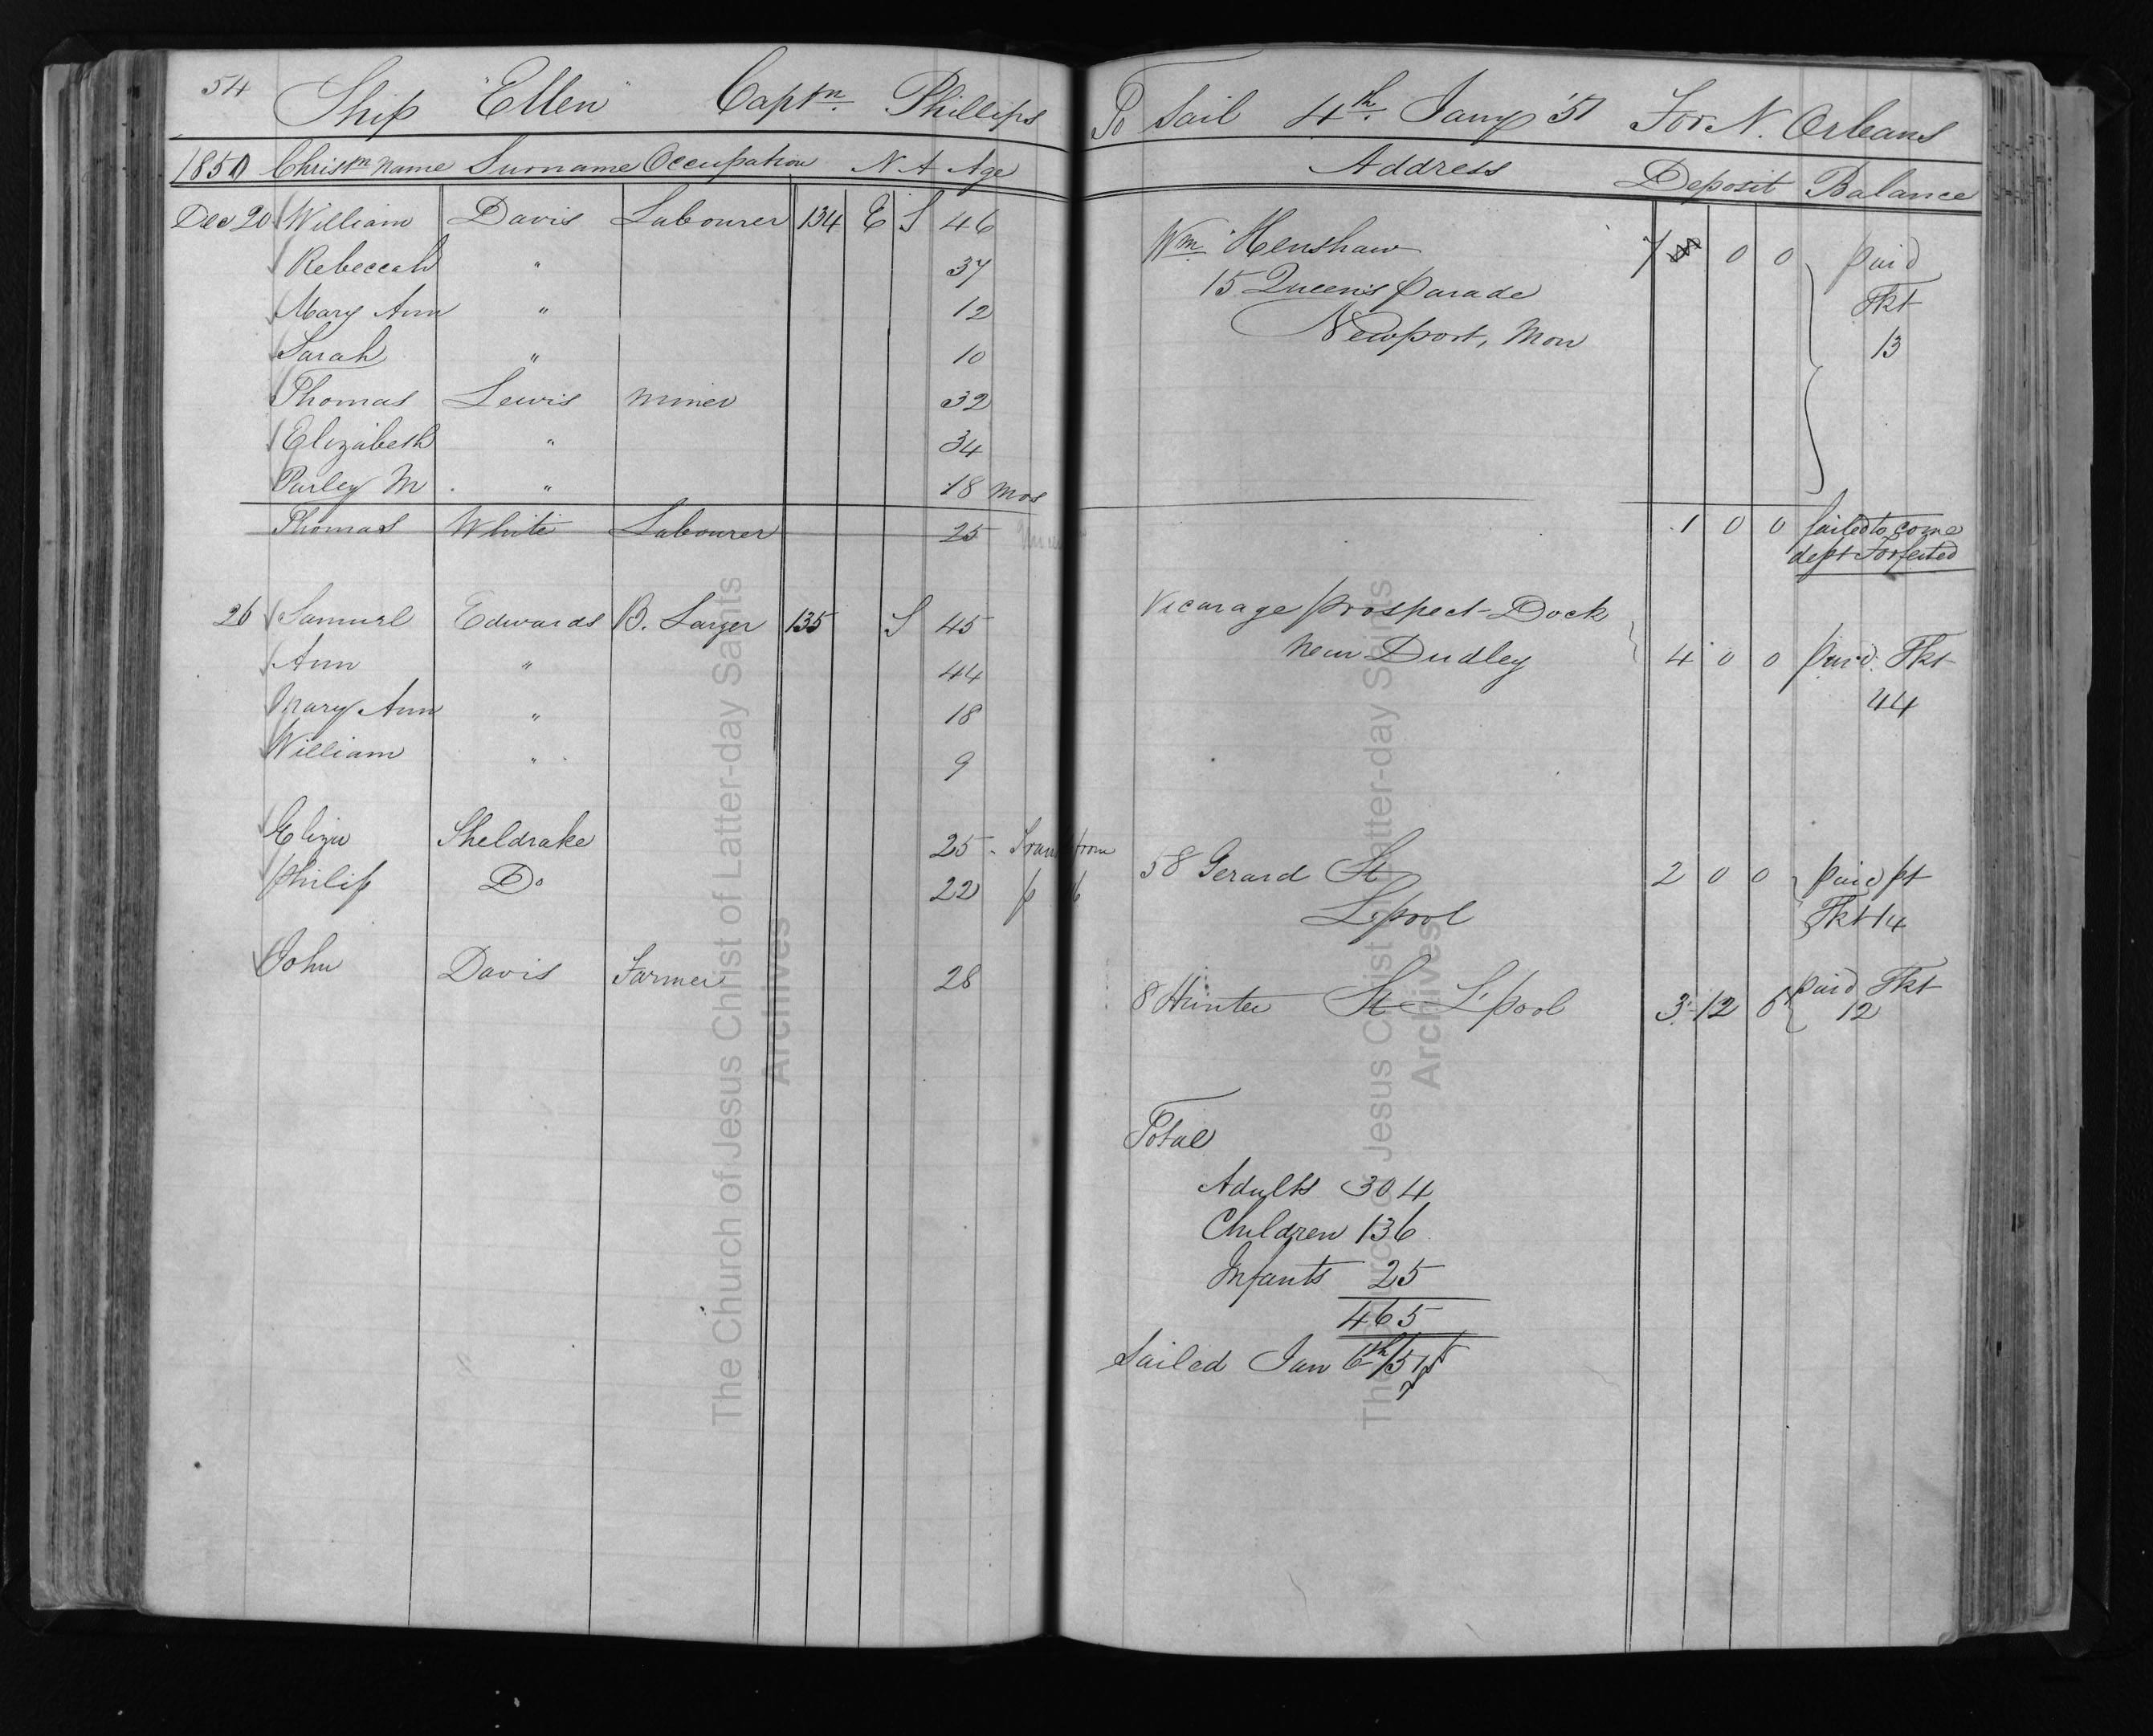 54 Ship "Ellen" Captn. Phillips
1850 Christn Name Surname Occupation N A Age
Dec 20 William Davis Labourer 134 E S 46
Rebeccah " 37
Mary Ann " 12
Sarah " 10
Thomas Lewis Miner 32
Elizabeth " 34
Parley M " 18 Mos
Thomas White Labourer 25
26 Samuel Edwards 135 S 45
Ann " 44
Mary Ann " 18
William " 9
Eliza Sheldrake 25 - from
Philip Do 22
John Davis Farmer 28
To Sail 4th. Jany '51 For N. Orleans
Address Deposit Balance
Wm Henshaw 7 0 0 paid
15 Queen's Parade Tkt
Newport, Mon 13
1 0 0 failed to come
dept Forfeited
Vicarage prospect Dock
Near Dudley 4 0 0 paid Tkt
44
58 Gerard St 2 0 0 paid pt
L.pool Tkt 14
8 Hunter St L'pool 3 12 6 paid Tkt
12
Total
Adults 304
Children 136
Infants 25
465
Sailed Jan /51
The Church of Jesus Christ of Latter-day Saints
Archives
The Church of Jesus Christ of Latter-day Saints
Archives